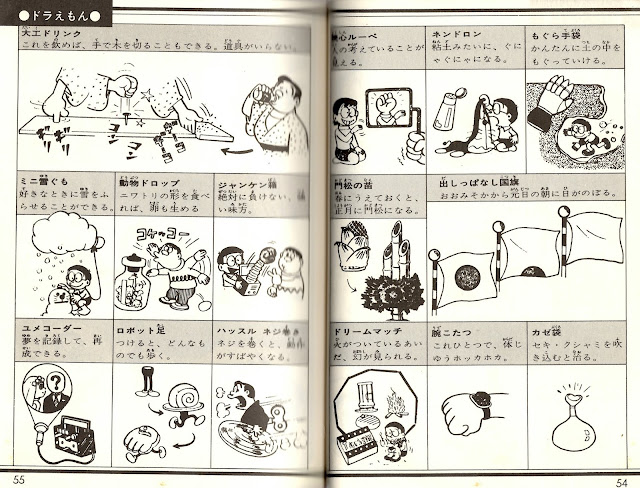 ●ドラえもん●
大工ドリンク
これを飲めば、手で木を切ることもできる。道具がいらない。
ギコ
ギコ
コン
コン
ミニ雪ぐも
好きなときに雪をふ
らせることができる。
動物ドロップ
ニワトリの形を食べ
れば、卵も生める
コケッコー
ジャンケン
絶対に負けない、
い味方。
ユメコーダー
夢を記録して、再
成できる。
ロボット足
つけると、どんなも
のでも歩く。
ハッスル ネジ巻き
ネジを巻くと、動作
がすばやくなる。
55
心ルーペ
の考えていることが
える。
ネンドロン
粘土みたいに、ぐに
ゃぐにゃになる。
もぐら手袋
かんたんに土の中を
もぐっていける。
門松の苗
春にうえておくと、
正月に門松になる。
出しっぱなし国旗
おおみそかから元日の朝に日がのぼる。
ドリームマッチ
火がついているあい
だ、幻が見られる。
腕こたつ
これひとつで、体じ
ゅうホッカホカ。
カゼ袋
セキ・クシャミを吹
き込むと治る。
54